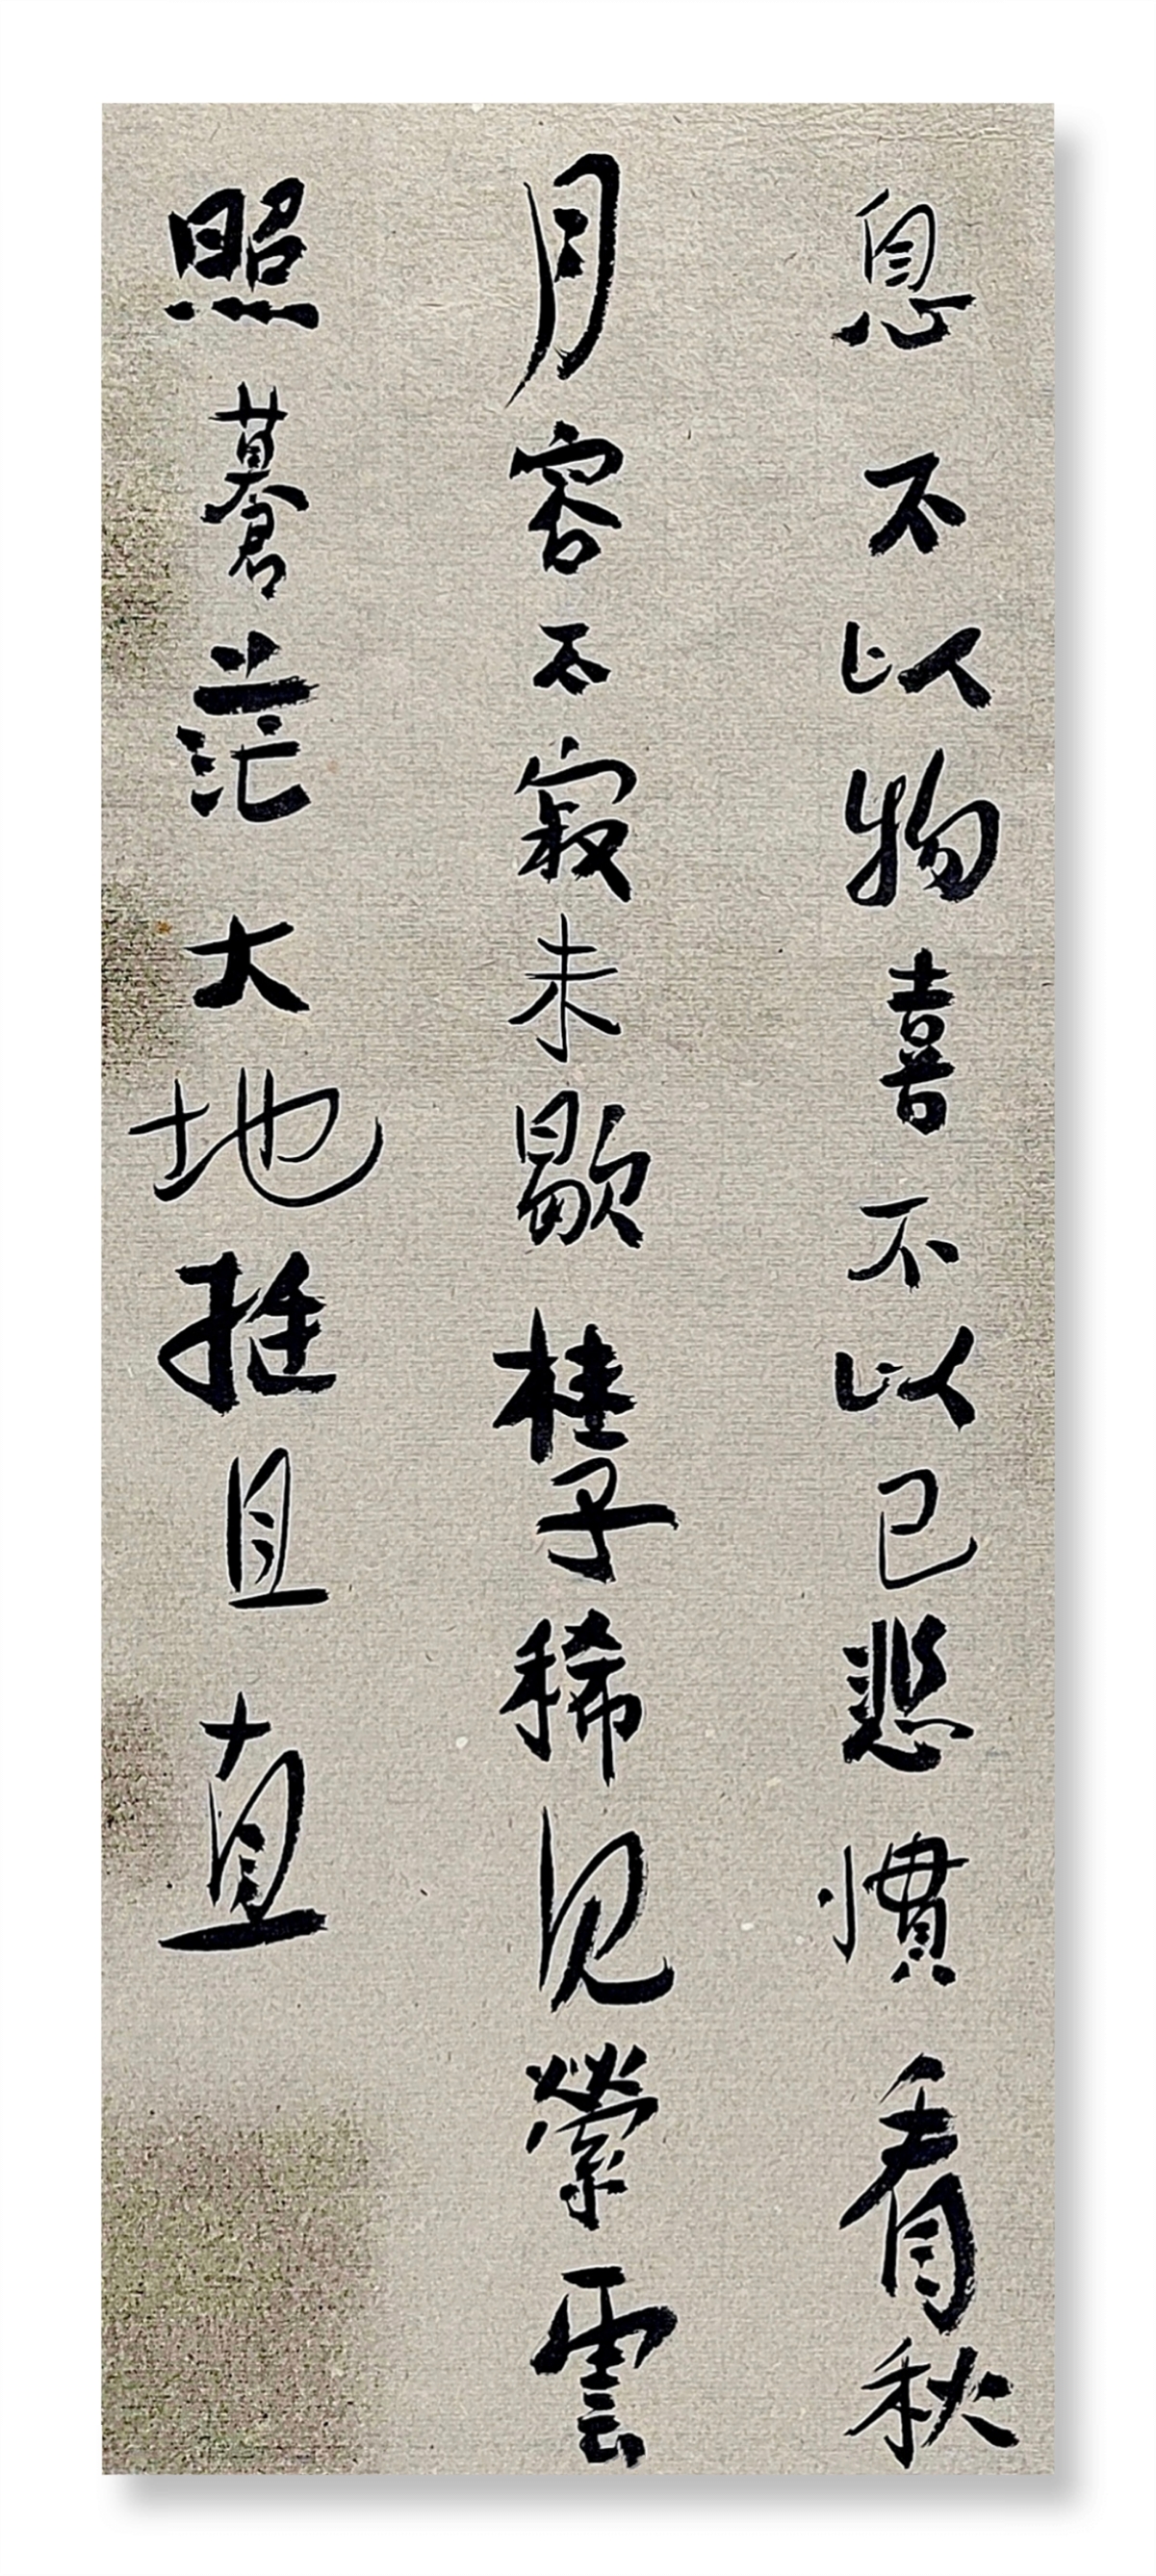 息不以物喜不以已悲慣看秋
月容不寂未歇桂子稀见縈雲
照蒼茫大地挺且直